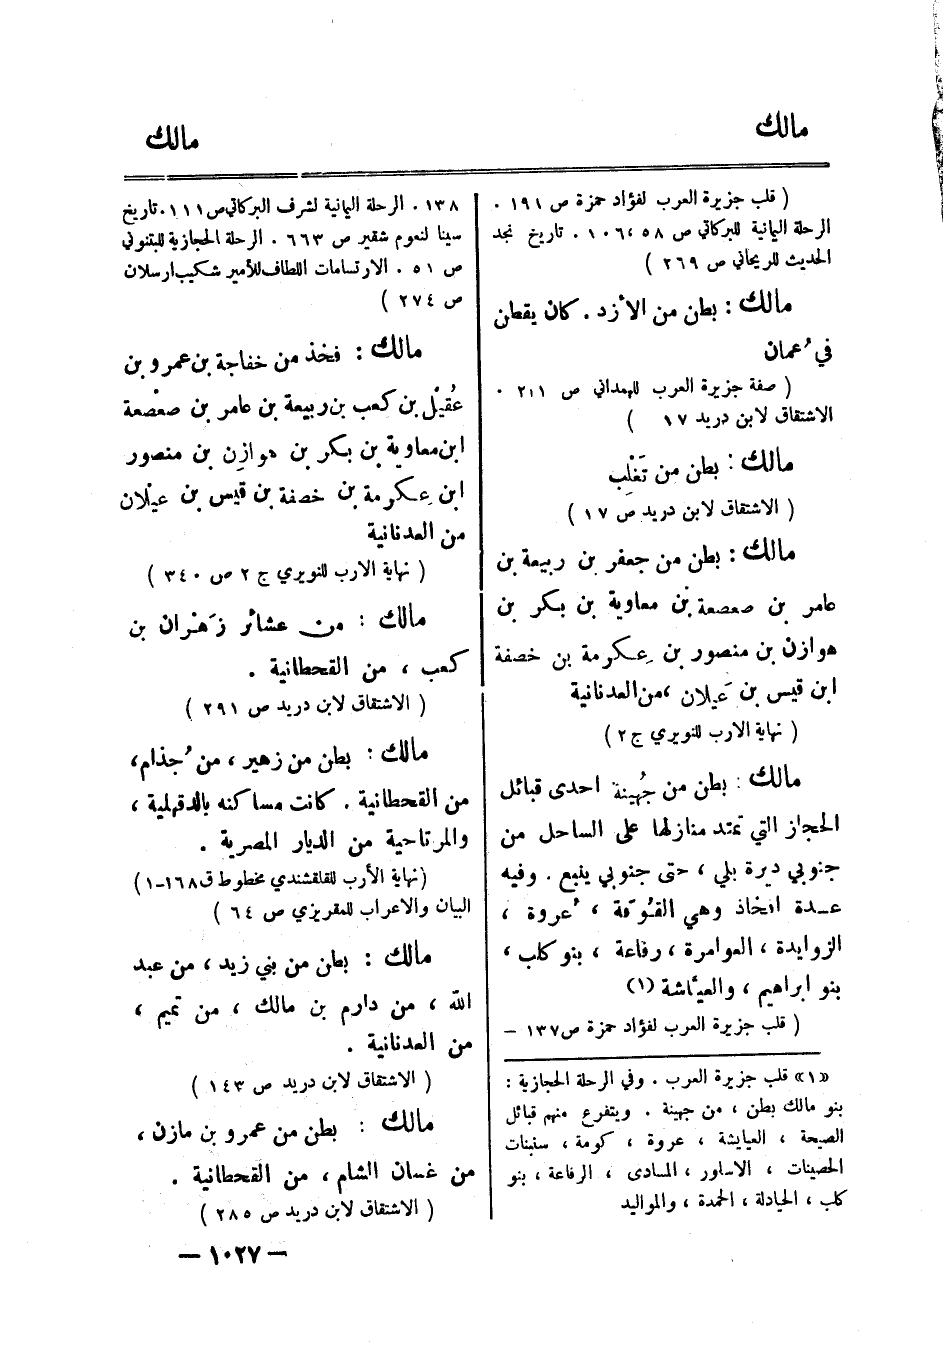 مالك
مالك
( قلب جزيرة العرب لفؤاد حمزة ص ١٩١ .
الرحلة اليمانية للبركاتي ص ٥٨ ، ١٠٦ . تاريخ نجد
الحديث للريحاني ص ٢٦٩ )
مالك : بطن من الأزد . كان يقطن
في عُمان
( صفة جزيرة العرب للهمداني ص ٢١١ .
الاشتقاق لابن دريد ١٧ )
مالك : بطن من تَغْلِب
( الاشتقاق لابن دريد ص ١٧ )
مالك : بطن من جعفر بن ربيعة بن
عامر بن صعصعة بن معاوية بن بكر بن
هوازن بن منصور بن عِكرمة بن خصفة
ابن قيس بن عَيلان ،من العدنانية
( نهاية الارب للنويري ج ٢ )
مالك : بطن من جُهينة احدى قبائل
الحجاز التي تمتد منازلها على الساحل من
جنوبي ديرة بلي ، حتى جنوبي ينبع . وفيه
عدة افخاذ وهي القُوَفة ، عُروة ،
الزوايدة ، العوامرة ، رفاعة ، بنو كلب ،
بنو ابراهيم ، والعيَّاشة (١)
( قلب جزيرة العرب لفؤاد حمزة ص ١٣٧ –
«١» قلب جزيرة العرب . وفي الرحلة الحجازية :
بنو مالك بطن ، من جهينة . ويتفرع منهم قبائل
الصيحة ، العيايشة ، عروة ، كومة ، سنبنات
الحصينات ، الاساور ، المسادى ، الرفاعة ، بنو
كلب ، الحيادلة ، الحمدة ، والمواليد
١٣٨ . الرحلة اليمانية لشرف البركاتي ص ١١١ . تاريخ
سينا لنعوم شقير ص ٦٦٣ . الرحلة الحجازية للبتنوني
ص ٥١ . الارتسامات اللطاف للأمير شكيب ارسلان
ص ٢٧٤ )
مالك : فخذ من خفاجة بن عمرو بن
عُقيْل بن كعب بن ربيعة بن عامر بن صعْصعة
ابن معاوية بن بكر بن هوازِن بن منصور
ابن عِكرمة بن خصفة بن قيْس بن عيْلان
من العدنانية
( نهاية الارب للنويري ج ٢ ص ٣٤٠ )
مالك : من عشائر زَهْران بن
كعب ، من القحطانية .
( الاشتقاق لابن دريد ص ٢٩١ )
مالك : بطن من زهير ، من جُذام ،
من القحطانية . كانت مساكنه بالدقهلية ،
والمرتاحية من الديار المصرية .
(نهاية الأرب للقلقشندي مخطوط ق ١٦٨-١ )
البيان والاعراب للمقريزي ص ٦٤ )
مالك : بطن من بني زيد ، من عبد
الله ، من دارم بن مالك ، من تميم ،
من العدنانية .
( الاشتقاق لابن دريد ص ١٤٣ )
مالك : بطن من عمرو بن مازن ،
من غسان الشام ، من القحطانية .
( الاشتقاق لابن دريد ص ٢٨٥ )
— ١٠٢٧ —